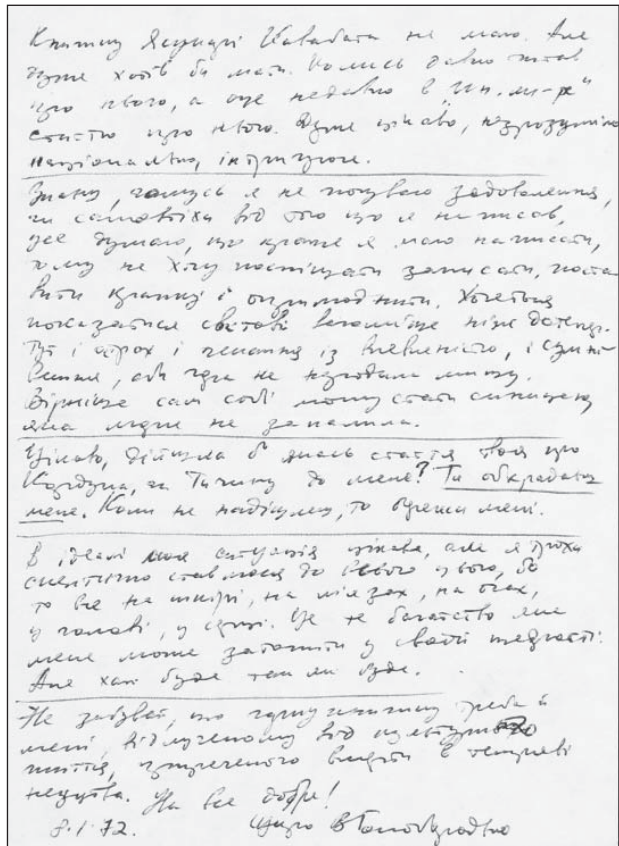 Книжку Ясунарі Кавабата не маю. Але
дуже хотів би мати. Колись давно читав
про нього, а оце недавно в "Ин. ли-ре"
статтю про нього. Дуже цікаво, незрозуміло
національно, інтригуюче.
Знаєш, чомусь я не почуваю задоволення,
чи самовтіхи від того що я написав,
все думаю, що краще я маю написати,
тому не хочу поспішати записати, поста
вити крапку і оприлюднити. Хочеться
показатися світові вагоміше ніж дотепер.
Тут і страх і чекання із впевненістю, і сумні
вання, аби гора не народила мишу.
Вірніше сам собі можу стати синицею
яка море не запалила.
Цікаво, дійшла б якась стаття твоя про
за Тичину до мене? Ти обкрадаєш
мене. Коли не надішлеш, то будеш мені.
В ідеалі моя ситуація цікава, але я трохи
скептично ставлюся до всього цього, бо
то все на шкірі, на м'язах, на очах,
у голові, у серці. Це те багатство яке
мене може затопити у своїй щедрості.
Але хай буде так як буде.
Не забувай, що книжку треба й
мені, відлученому від культурного
життя, приреченого в темряві
неуцтва. На все добре!
8.1.72. Щиро